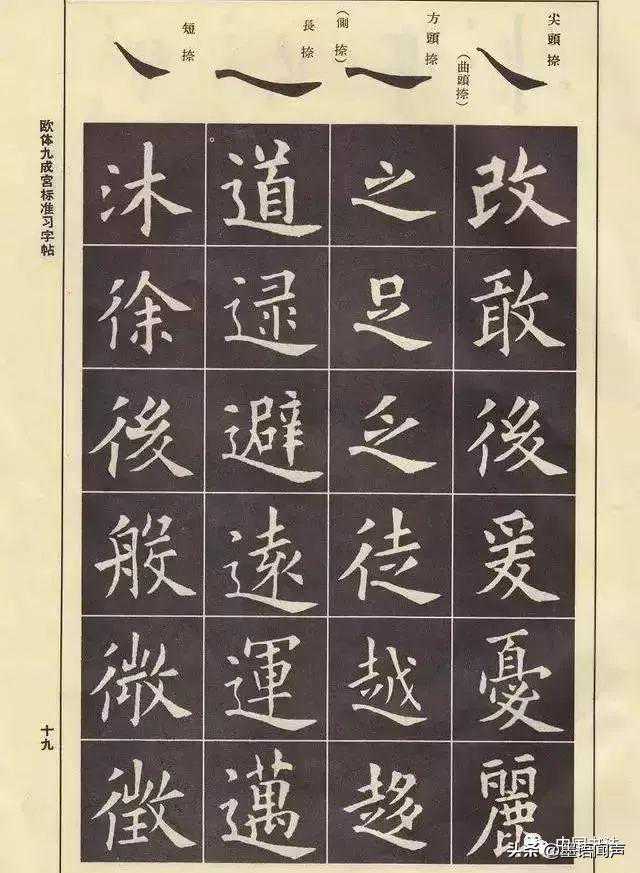 尖頭捺
(曲頭捺)
方頭捺
(側捺)
長捺
短捺
改敢後爰憂麗
之足乏徒越趍
道逮避遠運邁
沐徐後般微徵
欧体九成宮标准习字帖
十九
头条@墨语闻声